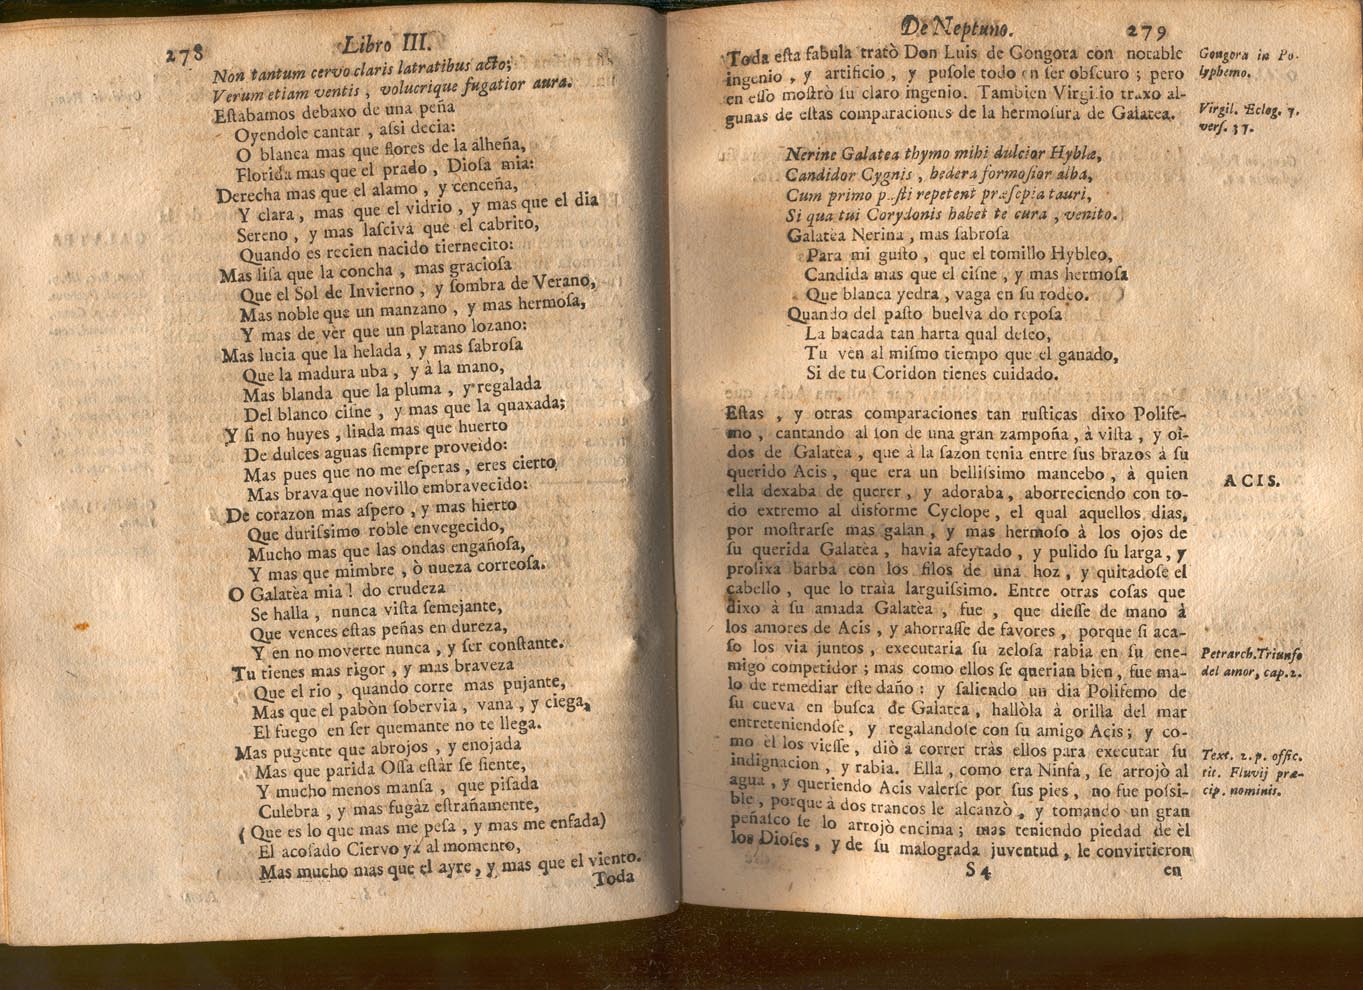 278
Libro III.
Non tantum cervo claris latratibus acto;
Verum etiam ventis, volucrique fugatior aura.
Eſtabamos debaxo de una peña
Oyendole cantar, aſsi decia:
O blanca mas que flores de la alheña,
Florida mas que el prado, Dioſa mia:
Derecha mas que el alamo, y cenceña,
Y clara, mas que el vidrio, y mas que el dia
Sereno, y mas laſciva que el cabrito,
Quando es recien nacido tiernecito:
Mas liſa que la concha, mas gracioſa
Que el Sol de Invierno, y ſombra de Verano,
Mas noble que un manzano, y mas hermoſa,
Y mas de vèr que un platano lozano:
Mas lucia que la helada, y mas ſabroſa
Que la madura uba, y à la mano,
Mas blanda que la pluma, y regalada
Del blanco ciſne, y mas que la quaxada;
Y ſi no huyes, linda mas que huerto
De dulces aguas ſiempre proveido:
Mas pues que no me eſperas, eres cierto,
Mas brava que novillo embravecido:
De corazon mas aſpero, y mas hierto
Que duriſsimo roble envegecido,
Mucho mas que las ondas engañoſa,
Y mas que mimbre, ò nueza correoſa.
O Galatèa mia! do crudeza
Se halla, nunca viſta ſemejante,
Que vences eſtas peñas en dureza,
Y en no moverte nunca, y ſer conſtante.
Tu tienes mas rigor, y mas braveza
Que el rio, quando corre mas pujante,
Mas que el pabòn ſobervia, vana, y ciega,
El fuego en ſer quemante no te llega.
Mas pugente que abrojos, y enojada
Mas que parida Oſſa eſtàr ſe ſiente,
Y mucho menos manſa, que piſada
Culebra, y mas fugàz eſtrañamente,
(Que es lo que mas me peſa, y mas me enfada)
El acoſado Ciervo yà al momento,
Mas mucho mas que el ayre, y mas que el viento.
Toda
De Neptuno.
279
Toda eſta fabula tratò Don Luis de Gongora con notable
ingenio, y artificio, y puſole todo en ſer obſcuro; pero
en eſſo moſtrò ſu claro ingenio. Tambien Virgilio traxo al-
gunas de eſtas comparaciones de la hermoſura de Galatea.
Gongora in Po-
lyphemo.
Virgil. Eclog. 7.
verſ. 37.
Nerine Galatea thymo mihi dulcior Hyblæ,
Candidor Cygnis, hedera formoſior alba,
Cum primo paſti repetent præſepia tauri,
Si qua tui Corydonis habet te cura, venito.
Galatèa Nerina, mas ſabroſa
Para mi guſto, que el tomillo Hybleo,
Candida mas que el ciſne, y mas hermoſa
Que blanca yedra, vaga en ſu rodeo.
Quando del paſto buelva do repoſa
La bacada tan harta qual deſeo,
Tu ven al miſmo tiempo que el ganado,
Si de tu Coridon tienes cuidado.
Eſtas, y otras comparaciones tan ruſticas dixo Polife-
mo, cantando al ſon de una gran zampoña, à viſta, y oì-
dos de Galatèa, que à la ſazon tenia entre ſus brazos à ſu
querido Acis, que era un belliſsimo mancebo, à quien
ella dexaba de querer, y adoraba, aborreciendo con to-
do extremo al disforme Cyclope, el qual aquellos dias,
por moſtrarſe mas galan, y mas hermoſo à los ojos de
ſu querida Galatèa, havia afeytado, y pulido ſu larga, y
prolixa barba con los filos de una hoz, y quitadoſe el
cabello, que lo traìa larguiſsimo. Entre otras coſas que
dixo à ſu amada Galatèa, fue, que dieſſe de mano à
los amores de Acis, y ahorraſſe de favores, porque ſi aca-
ſo los via juntos, executaria ſu zeloſa rabia en ſu ene-
migo competidor; mas como ellos ſe querian bien, fue ma-
lo de remediar eſte daño: y ſaliendo un dia Polifemo de
ſu cueva en buſca de Galatèa, hallòla à orilla del mar
entreteniendoſe, y regalandoſe con ſu amigo Acis; y co-
mo èl los vieſſe, diò à correr tràs ellos para executar ſu
indignacion, y rabia. Ella, como era Ninfa, ſe arrojò al
agua, y queriendo Acis valerſe por ſus pies, no fue poſsi-
ble, porque à dos trancos le alcanzò, y tomando un gran
peñaſco ſe lo arrojò encima; mas teniendo piedad de èl
los Dioſes, y de ſu malograda juventud, le convirtieron
ACIS.
Petrarch. Triunfo
del amor, cap. 2.
Text. 2. p. offic.
tit. Fluvij præ-
cip. nominis.
S 4
en